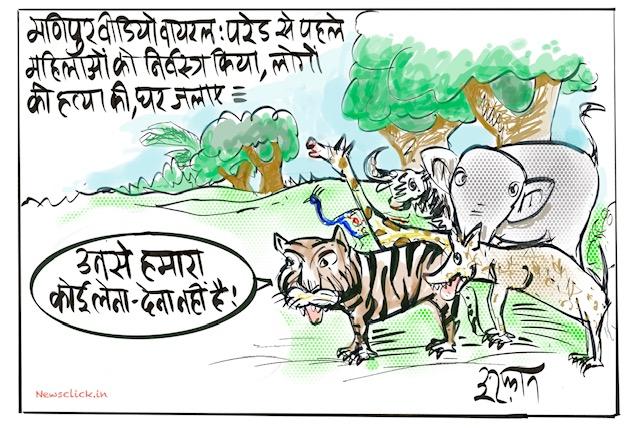 मणिपुर वीडियो वायरल: परेड से पहले
महिलाओं को निर्वस्त्र किया, लोगों
की हत्या की, घर जलाए
उनसे हमारा
कोई लेना-देना नहीं है!
इरफ़ान
Newsclick.in